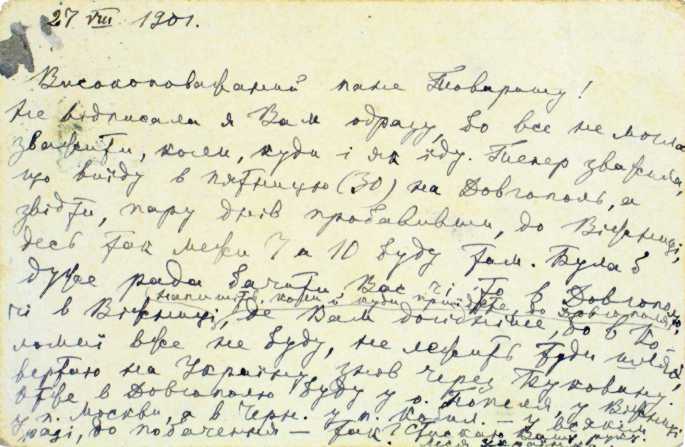 27 VIII 1901.
Високоповажаний пане Товаришу!
Не відписала я Вам одразу, бо все не могла
зважити, коли, куди і як їду. Тепер зважила,
що виїду в пятницю (30) на Довгополь, а
звідти, пару днів пробавивши, до Вижниці,
десь так межи 7 а 10 буду там. Була б
дуже рада бачити Вас чі то в Довгополю,
напишіть, коли й куди приїдете, до Довгополя
чі в Вижниці, де Вам догідніше, бо в Ко-
ломиї вже не буду, не лежить туди шлях,
вертаю на Україну знов через Буковину.
Отже в Довгополю буду у о. Попеля, у Вижниці
у п. Москви, а в Черн. у п. Кобил. — у всякім
разі, до побачення — так? Стискаю Вашу руку